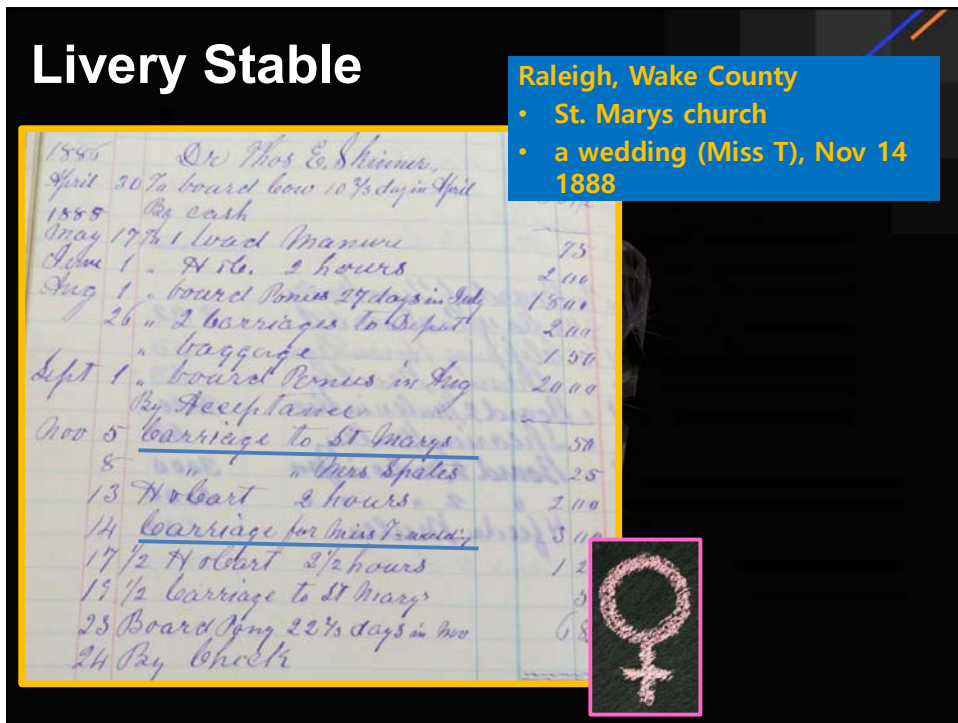 Livery Stable
Raleigh, Wake County
• St. Marys church
• a wedding (Miss T), Nov 14
1888
Dr Thos E. Skinner,
April 30 To board Cow 10 2/3 day in April
1888 By cash
May 17 To 1 Load Manure 75
June 1 " 2 hours 2 00
Aug 1 " board Ponies 27 days in July 18 00
26 " 2 Carriages to Depot 2 00
" baggage 1 50
Sept 1 " board Ponies in Aug 20 00
By Acceptance
Nov 5 Carriage to St Marys 50
8 " " Mrs Spates 25
13 2 hours 2 00
14 Carriage for Miss T wedding 3 00
17 1/2 2 1/2 hours
19 1/2 Carriage to St Marys
23 Board Pony 22 days in Nov
24 By Check